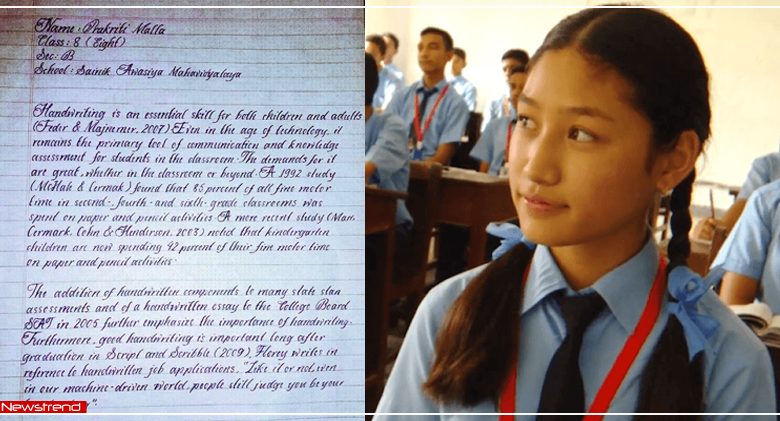 Name : Prakriti Malla
Class : 8 (Eight)
Sec : B
School : Sainik Awasiya Mahavidyalaya
Handwriting is an essential skill for both children and adults
(Feder & Majnemer, 2007) Even in the age of technology, it
remains the primary tool of communication and knowledge
assessment for students in the classroom. The demands for it
are great, whether in the classroom or beyond. A 1992 study
(McHale & Cermak) found that 85 percent of all fine motor
time in second-, fourth- and sixth- grade classrooms was
spent on paper and pencil activities A more recent study (Marr,
Cermark, Cohn & Henderson, 2003) noted that kindergarten
children are now spending 42 percent of their fine motor time
on paper and pencil activities.
The addition of handwritten components to many state
assessments and of a handwritten essay to the College Board
SAT in 2005 further emphasize the importance of handwriting.
Furthermore, good handwriting is important long after
graduation in Script and Scribble (2009), Florey writes in
reference to handwritten job applications, "Like it or not, even
in our machine-driven world, people still judge you by your
Newstrend